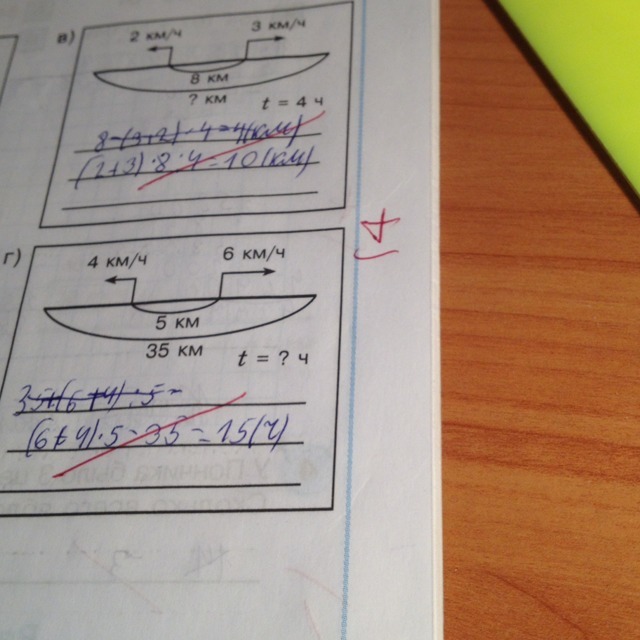 в)
2 км/ч 3 км/ч
8 км
? км t = 4 ч
8-(3+2)·4=4(км)
(2+3)·8·4=10(км)
4
г)
4 км/ч 6 км/ч
5 км
35 км t = ? ч
35+(6+4):5=
(6+4)·5-35=15(ч)